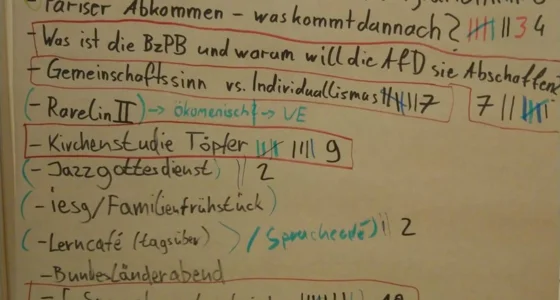 - Pariser Abkommen - was kommt dannach? 34
- Was ist die BzPB und warum will die AfD sie Abschaffen
- Gemeinschaftssinn vs. Individuallismus 7 7
(- Ravelin II) -> ökomenisch -> VE
- Kirchenstudie Töpfer 9
(- Jazzgottesdienst) 2
(- iesg/Familienfrühstück)
(- Lerncafé (tagsüber) ) / Sprachcafé) 2
- Bundesländerabend